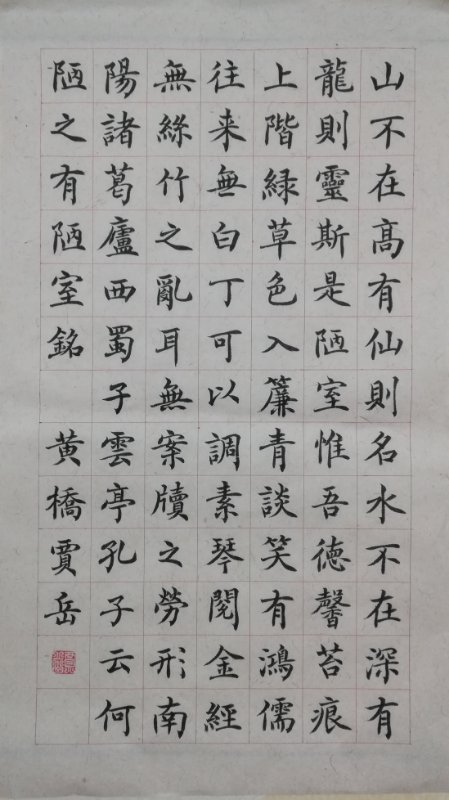 山不在高有仙則名水不在深有
龍則靈斯是陋室惟吾德馨苔痕
上階緑草色入簾青談笑有鴻儒
往来無白丁可以調素琴閱金經
無絲竹之亂耳無案牘之勞形南
陽諸葛廬西蜀子雲亭孔子云何
陋之有陋室銘 黄橋賈岳